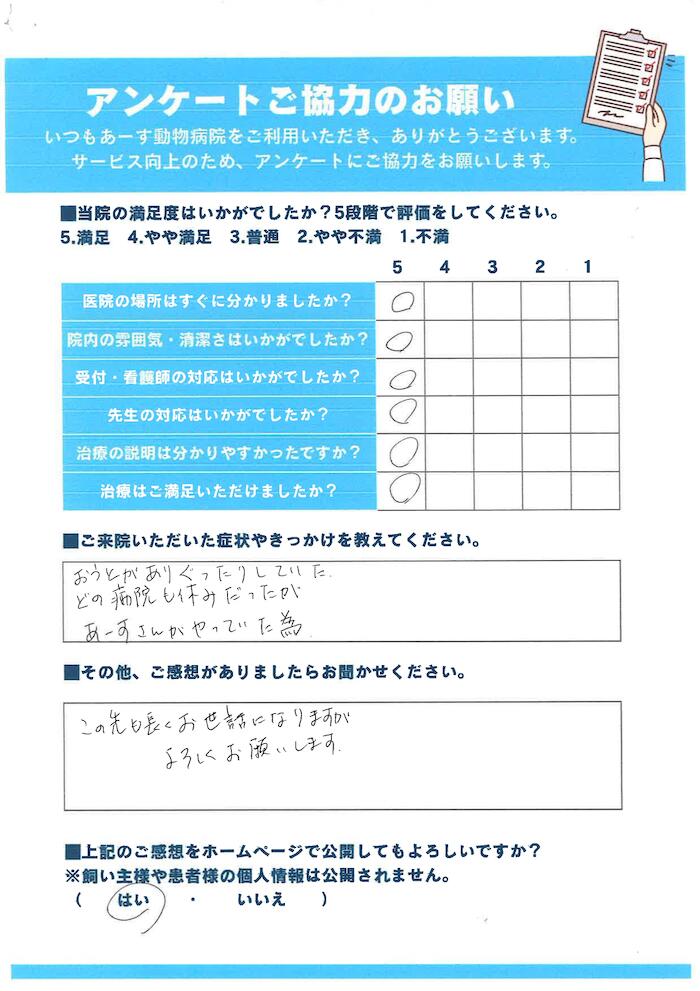 アンケートご協力のお願い
いつもあーす動物病院をご利用いただき、ありがとうございます。
サービス向上のため、アンケートにご協力をお願いします。
■当院の満足度はいかがでしたか？5段階で評価をしてください。
5.満足 4.やや満足 3.普通 2.やや不満 1.不満
5 4 3 2 1
医院の場所はすぐに分かりましたか？
院内の雰囲気・清潔さはいかがでしたか？
受付・看護師の対応はいかがでしたか？
先生の対応はいかがでしたか？
治療の説明は分かりやすかったですか？
治療はご満足いただけましたか？
■ご来院いただいた症状やきっかけを教えてください。
おうとがありぐったりしていた.
どの病院も休みだったが
あーすさんがやっていた為.
■その他、ご感想がありましたらお聞かせください。
この先も長くお世話になりますが
よろしくお願いします.
■上記のご感想をホームページで公開してもよろしいですか？
※飼い主様や患者様の個人情報は公開されません。
（ はい ・ いいえ ）